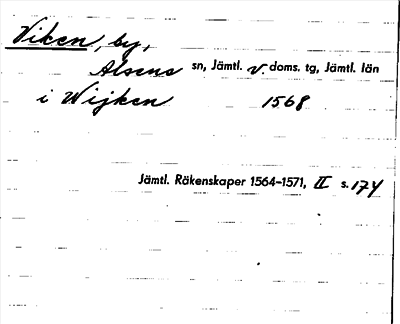 Viken, by,
Alsens sn, Jämtl. v. doms. tg, Jämtl. län
i Wijken 1568
Jämtl. Räkenskaper 1564-1571, II s. 174